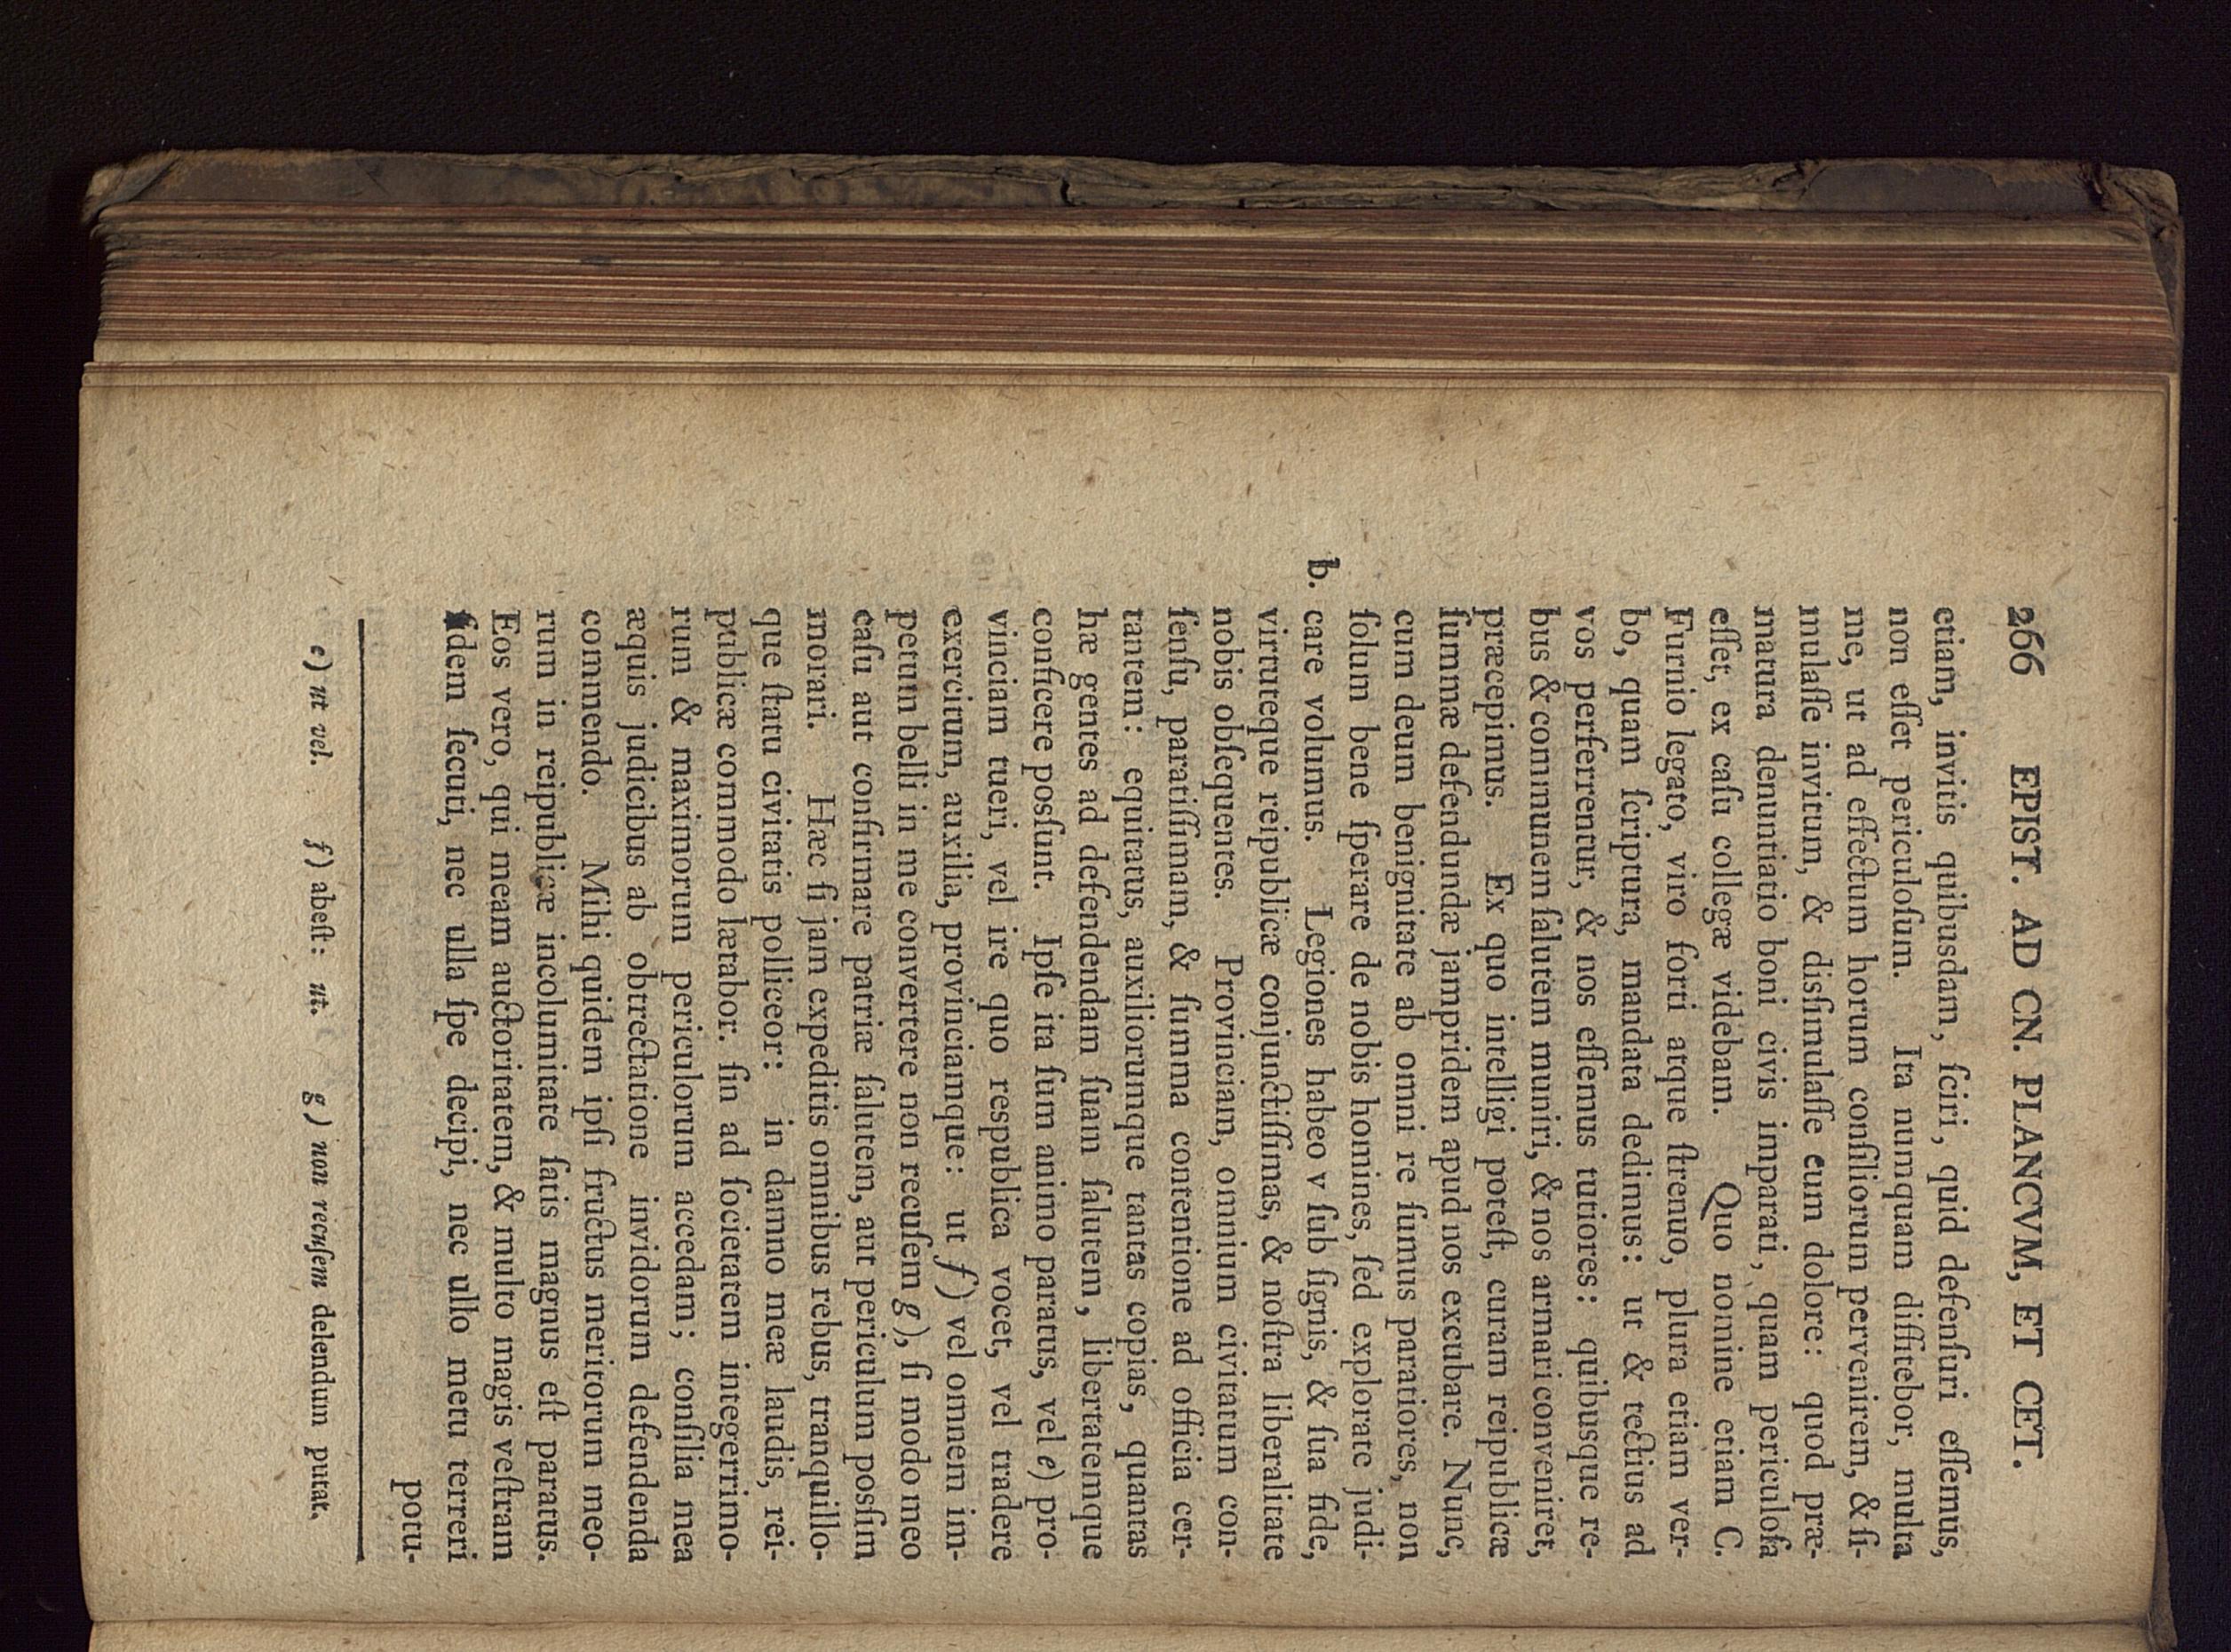 266 EPIST. AD CN. PLANCVM, ET CET.
etiam, invitis quibusdam, ſciri, quid defenſuri eſſemus,
non eſſet periculoſum. Ita numquam diffitebor, multa
me, ut ad effectum horum conſiliorum pervenirem, & ſi-
mulaſſe invitum, & disſimulaſſe cum dolore: quod præ-
matura denuntiatio boni civis imparati, quam periculoſa
eſſet, ex caſu collegæ videbam. Quo nomine etiam C.
Furnio legato, viro forti atque ſtrenuo, plura etiam ver-
bo, quam ſcriptura, mandata dedimus: ut & tectius ad
vos perferrentur, & nos eſſemus tutiores: quibusque re-
bus & communem ſalutem muniri, & nos armari conveniret,
præcepimus. Ex quo intelligi poteſt, curam reipublicæ
ſummæ defendundæ jampridem apud nos excubare. Nunc,
cum deum benignitate ab omni re ſumus paratiores, non
ſolum bene ſperare de nobis homines, ſed explorate judi-
b. care volumus. Legiones habeo v ſub ſignis, & ſua fide,
virtuteque reipublicæ conjunctiſſimas, & noſtra liberalitate
nobis obſequentes. Provinciam, omnium civitatum con-
ſenſu, paratiſſimam, & ſumma contentione ad officia cer-
tantem: equitatus, auxiliorumque tantas copias, quantas
hæ gentes ad defendendam ſuam ſalutem, libertatemque
conficere posſunt. Ipſe ita ſum animo paratus, vel e) pro-
vinciam tueri, vel ire quo respublica vocet, vel tradere
exercitum, auxilia, provinciamque: ut f) vel omnem im-
petum belli in me convertere non recuſem g), ſi modo meo
caſu aut confirmare patriæ ſalutem, aut periculum posſim
morari. Hæc ſi jam expeditis omnibus rebus, tranquillo-
que ſtatu civitatis polliceor: in damno meæ laudis, rei-
publicæ commodo lætabor. ſin ad ſocietatem integerrimo-
rum & maximorum periculorum accedam; conſilia mea
æquis judicibus ab obtrectatione invidorum defendenda
commendo. Mihi quidem ipſi fructus meritorum meo-
rum in reipublicæ incolumitate ſatis magnus eſt paratus.
Eos vero, qui meam auctoritatem, & multo magis veſtram
fidem ſecuti, nec ulla ſpe decipi, nec ullo metu terreri
potu-
e) ut vel. f) abeſt: ut. g) non recuſem delendum putat.